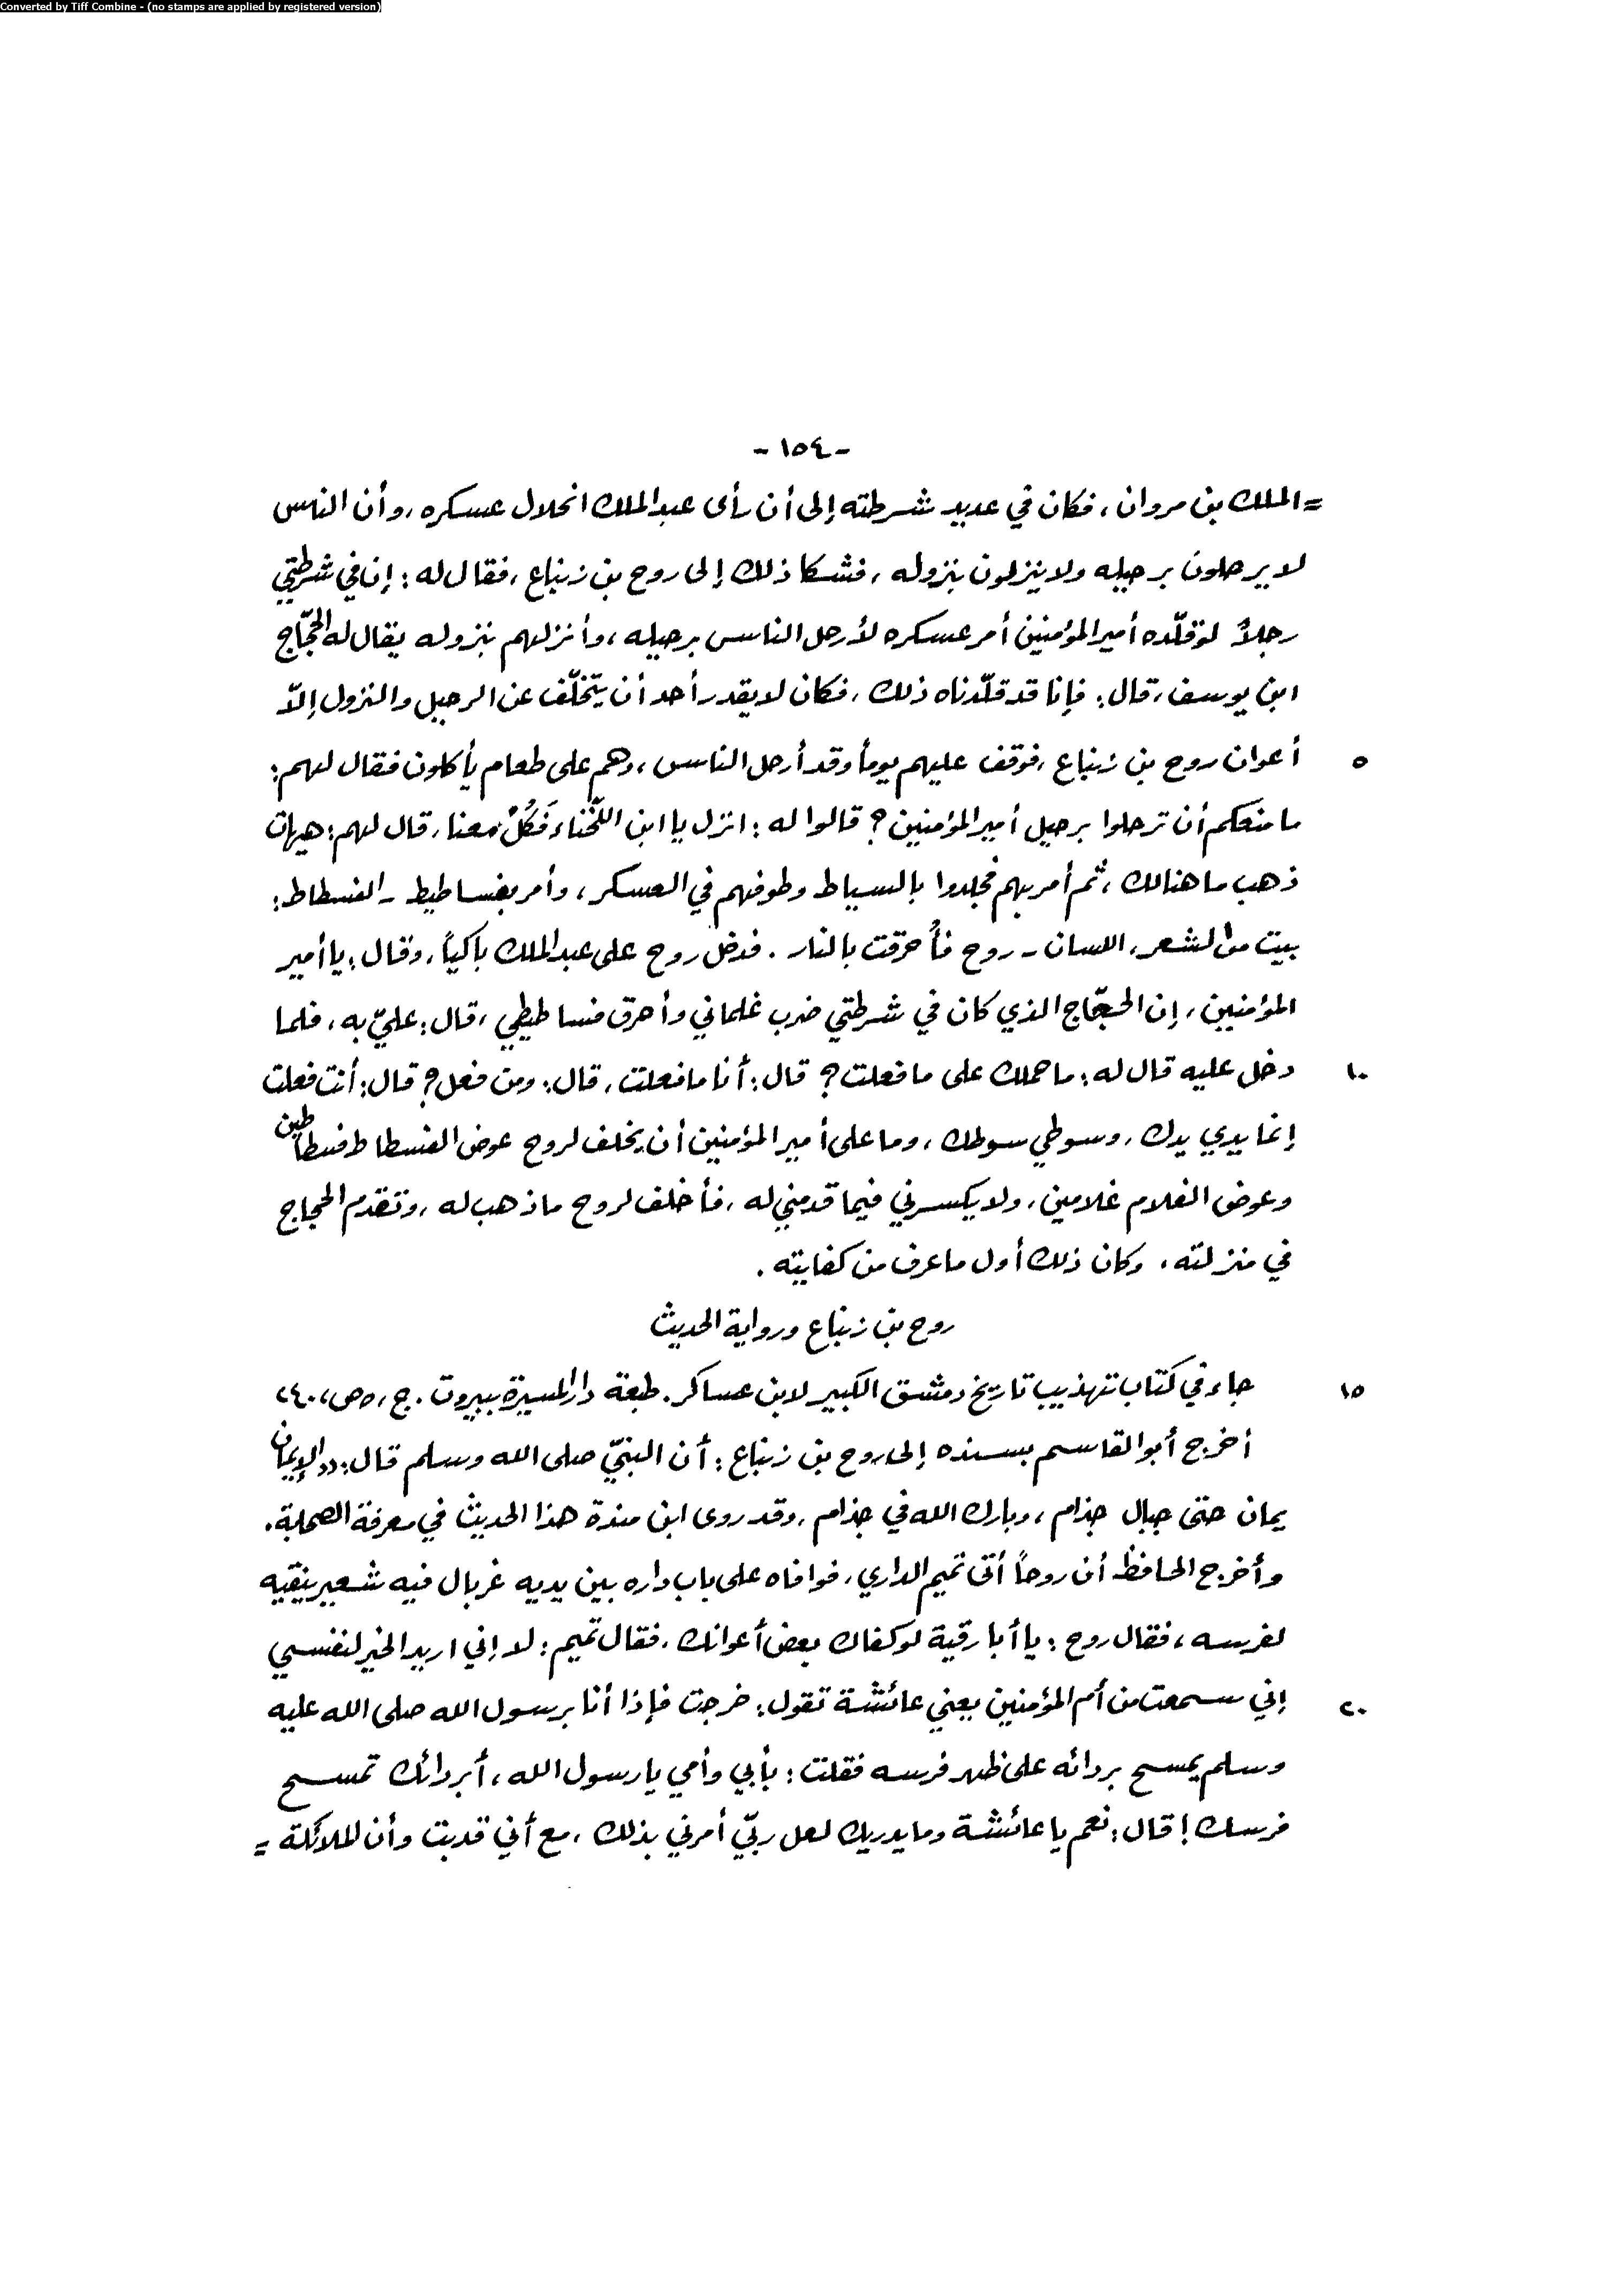 Converted by Tiff Combine - (no stamps are applied by registered version)
- ١٥٤ -
= الملك بن مروان ، فكان في عديد شرطته إلى أن رأى عبد الملك انحلال عسكره ، وأن الناس
لا يرحلون برحيله ولا ينزلون بنزوله ، فشكا ذلك إلى روح بن زنباع ، فقال له : إن في شرطتي
رجلاً لو قلّده أمير المؤمنين أمر عسكره لأرحل الناس برحيله ، وأنزلهم بنزوله يقال له الحجّاج
ابن يوسف ، قال : فإنا قد قلّدناه ذلك ، فكان لا يقدر أحد أن يتخلّف عن الرحيل والنزول إلاّ
٥ أعوان روح بن زنباع ، فوقف عليهم يوماً وقد أرحل الناس ، وهم على طعام يأكلون فقال لهم :
ما منعكم أن ترحلوا برحيل أمير المؤمنين ؟ قالوا له : انزل يا ابن اللّخناء فَكُلْ معنا ، قال لهم : هيهات
ذهب ما هنالك ، ثم أمر بهم فجلدوا بالسياط وطوفهم في العسكر ، وأمر بفساطيط - الفسطاط :
بيت من الشعر ، اللسان - روح فأُحرقت بالنار . فدخل روح على عبد الملك باكياً ، وقال : يا أمير
المؤمنين ، إن الحجّاج الذي كان في شرطتي ضرب غلماني وأحرق فساطيطي ، قال : عليّ به ، فلما
١٠ دخل عليه قال له : ما حملك على ما فعلت ؟ قال : أنا ما فعلت ، قال : ومن فعل ؟ قال : أنت فعلت
إنما يدي يدك ، وسوطي سوطك ، وما على أمير المؤمنين أن يخلف لروح عوض الفسطاط فسطاطين
وعوض الغلام غلامين ، ولا يكسرني فيما قدمني له ، فأخلف لروح ما ذهب له ، وتقدم الحجاج
في منزلته ، وكان ذلك أول ما عرف من كفايته .
روح بن زنباع ورواية الحديث
١٥ جاء في كتاب تهذيب تاريخ دمشق الكبير لابن عساكر . طبعة دار المسيرة ببيروت . ج ، ٥ ص ، ٢٤٠
أخرج أبو القاسم بسنده إلى روح بن زنباع : أن النبيّ صلى الله وسلم قال : «الإيمان
يمان حتى جبال جذام ، وبارك الله في جذام ، وقد روى ابن مندة هذا الحديث في معرفة الصحابة .
وأخرج الحافظ أن روحاً أتى تميم الداري ، فوافاه على باب داره بين يديه غربال فيه شعير ينقيه
لفرسه ، فقال روح : يا أبا رقية لو كفاك بعض أعوانك ، فقال تميم : لا إني اريد الخير لنفسي
٢٠ إني سمعت من أم المؤمنين يعني عائشة تقول : خرجت فإذا أنا برسول الله صلى الله عليه
وسلم يمسح بردائه على ظهر فرسه فقلت : بأبي وأمي يا رسول الله ، أبردائك تمسح
فرسك ! قال : نعم يا عائشة وما يدريك لعل ربّي أمرني بذلك ، مع أني قد بت وأن الملائكة =